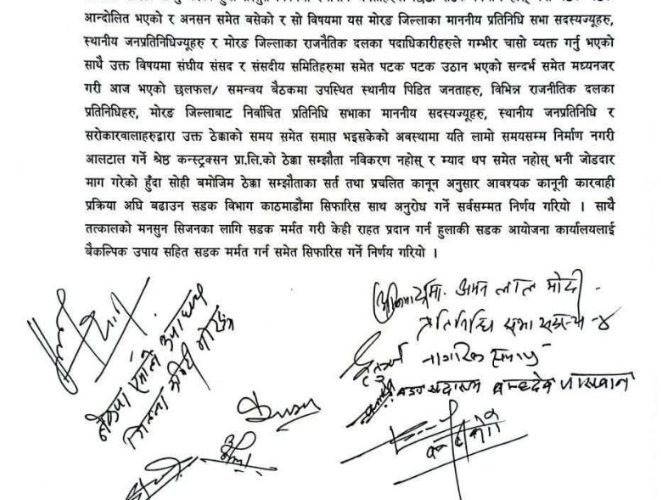 आन्दोलित भएको र अनसन समेत बसेको र सो विषयमा यस मोरङ जिल्लाका माननीय प्रतिनिधि सभा सदस्यज्यूहरु,
स्थानीय जनप्रतिनिधिज्यूहरु र मोरङ जिल्लाका राजनैतिक दलका पदाधिकारीहरुले गम्भीर चासो व्यक्त गर्नु भएको
साथै उक्त विषयमा संघीय संसद र संसदीय समितिहरुमा समेत पटक पटक उठान भएको सन्दर्भ समेत मध्यनजर
गरी आज भएको छलफल/ समन्वय बैठकमा उपस्थित स्थानीय पिडित जनताहरु, विभिन्न राजनीतिक दलका
प्रतिनिधिहरु, मोरङ जिल्लाबाट निर्वाचित प्रतिनिधि सभाका माननीय सदस्यज्यूहरु, स्थानीय जनप्रतिनिधि र
सरोकारवालाहरुद्वारा उक्त ठेक्काको समय समेत समाप्त भइसकेको अवस्थामा यति लामो समयसम्म निर्माण नगरी
आलटाल गर्ने श्रेष्ठ कन्स्ट्रक्सन प्रा.लि.को ठेक्का सम्झौता नविकरण नहोस् र म्याद थप समेत नहोस् भनी जोडदार
माग गरेको हुँदा सोही बमोजिम ठेक्का सम्झौताका सर्त तथा प्रचलित कानून अनुसार आवश्यक कानूनी कारवाही
प्रक्रिया अघि बढाउन सडक विभाग काठमाडौंमा सिफारिस साथ अनुरोध गर्ने सर्वसम्मत निर्णय गरियो । साथै
तत्कालको मनसुन सिजनका लागि सडक मर्मत गरी केही राहत प्रदान गर्न हुलाकी सडक आयोजना कार्यालयलाई
बैकल्पिक उपाय सहित सडक मर्मत गर्न समेत सिफारिस गर्ने निर्णय गरियो ।
अमन लाल मोदी
प्रतिनिधि सभा सदस्य - ४
नागरिक समाज